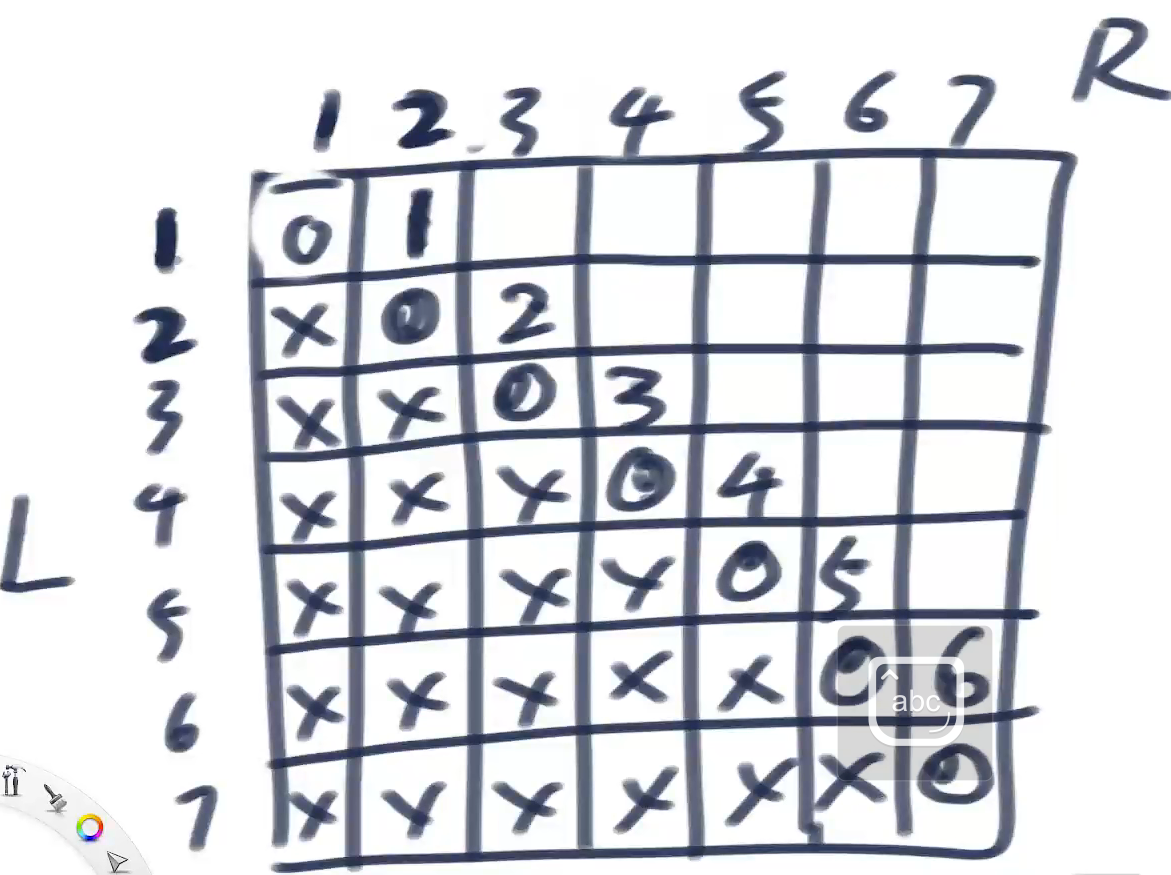 R
1 2 3 4 5 6 7
1 0 1
2 x 0 2
3 x x 0 3
4 x x x 0 4
L
5 x x x x 0 5
6 x x x x x 0 6
abc
7 x x x x x x 0